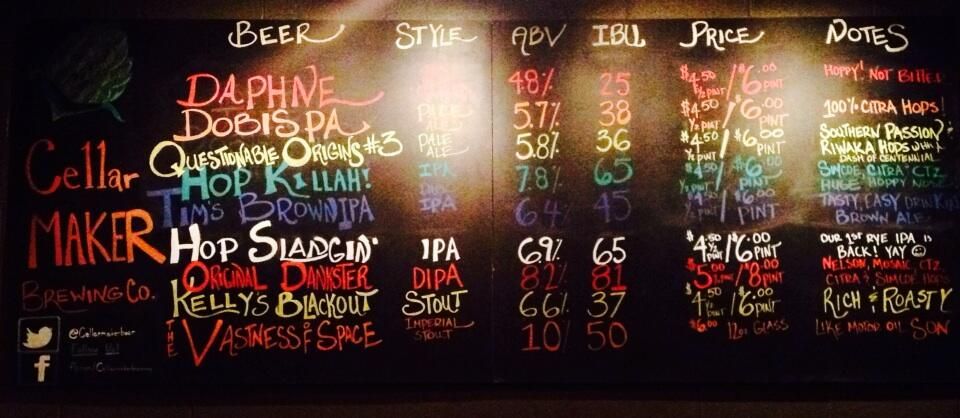 BEER STYLE ABV IBU PRICE NOTES
DAPHNE 4.8% 25 $4.50 ½ PINT / $6.00 PINT HOPPY! NOT BITTER
DOBIS PA PALE ALE 5.7% 38 $4.50 ½ PINT / $6.00 PINT 100% CITRA HOPS!
QUESTIONABLE ORIGINS #3 PALE ALE 5.8% 36 $4.50 ½ PINT / $6.00 PINT SOUTHERN PASSION
RIWAKA HODS WITH A
DASH OF CENTENNIAL
HOP KILLAH! IPA 7.8% 65 $4.50 ½ PINT / $6 PINT SIMCOE, CITRA CTZ
HUGE HOPPY NOSE
TIM'S BROWN IPA IPA 6.4% 45 / $6 PINT TASTY, EASY DRINKIN
BROWN ALE
HOP SLADGIN' IPA 6.9% 65 $4.50 ½ PINT / $6.00 PINT OUR 1ST RYE IPA IS
BACK! YAY
ORIGINAL DANKSTER DIPA 8.2% 81 $5.00 / $8.00 PINT NELSON, MOSAIC, CTZ
CITRA & SIMCOE HOPS
KELLY'S BLACKOUT STOUT 6.6% 37 $4.50 ½ PINT / $6.00 PINT RICH & ROASTY
THE VASTNESS OF SPACE IMPERIAL STOUT 10% 50 $6.00 12oz GLASS LIKE MOTOR OIL SON
Cellar
MAKER
BREWING CO.
@Cellarmakerbeer
Follow Us!